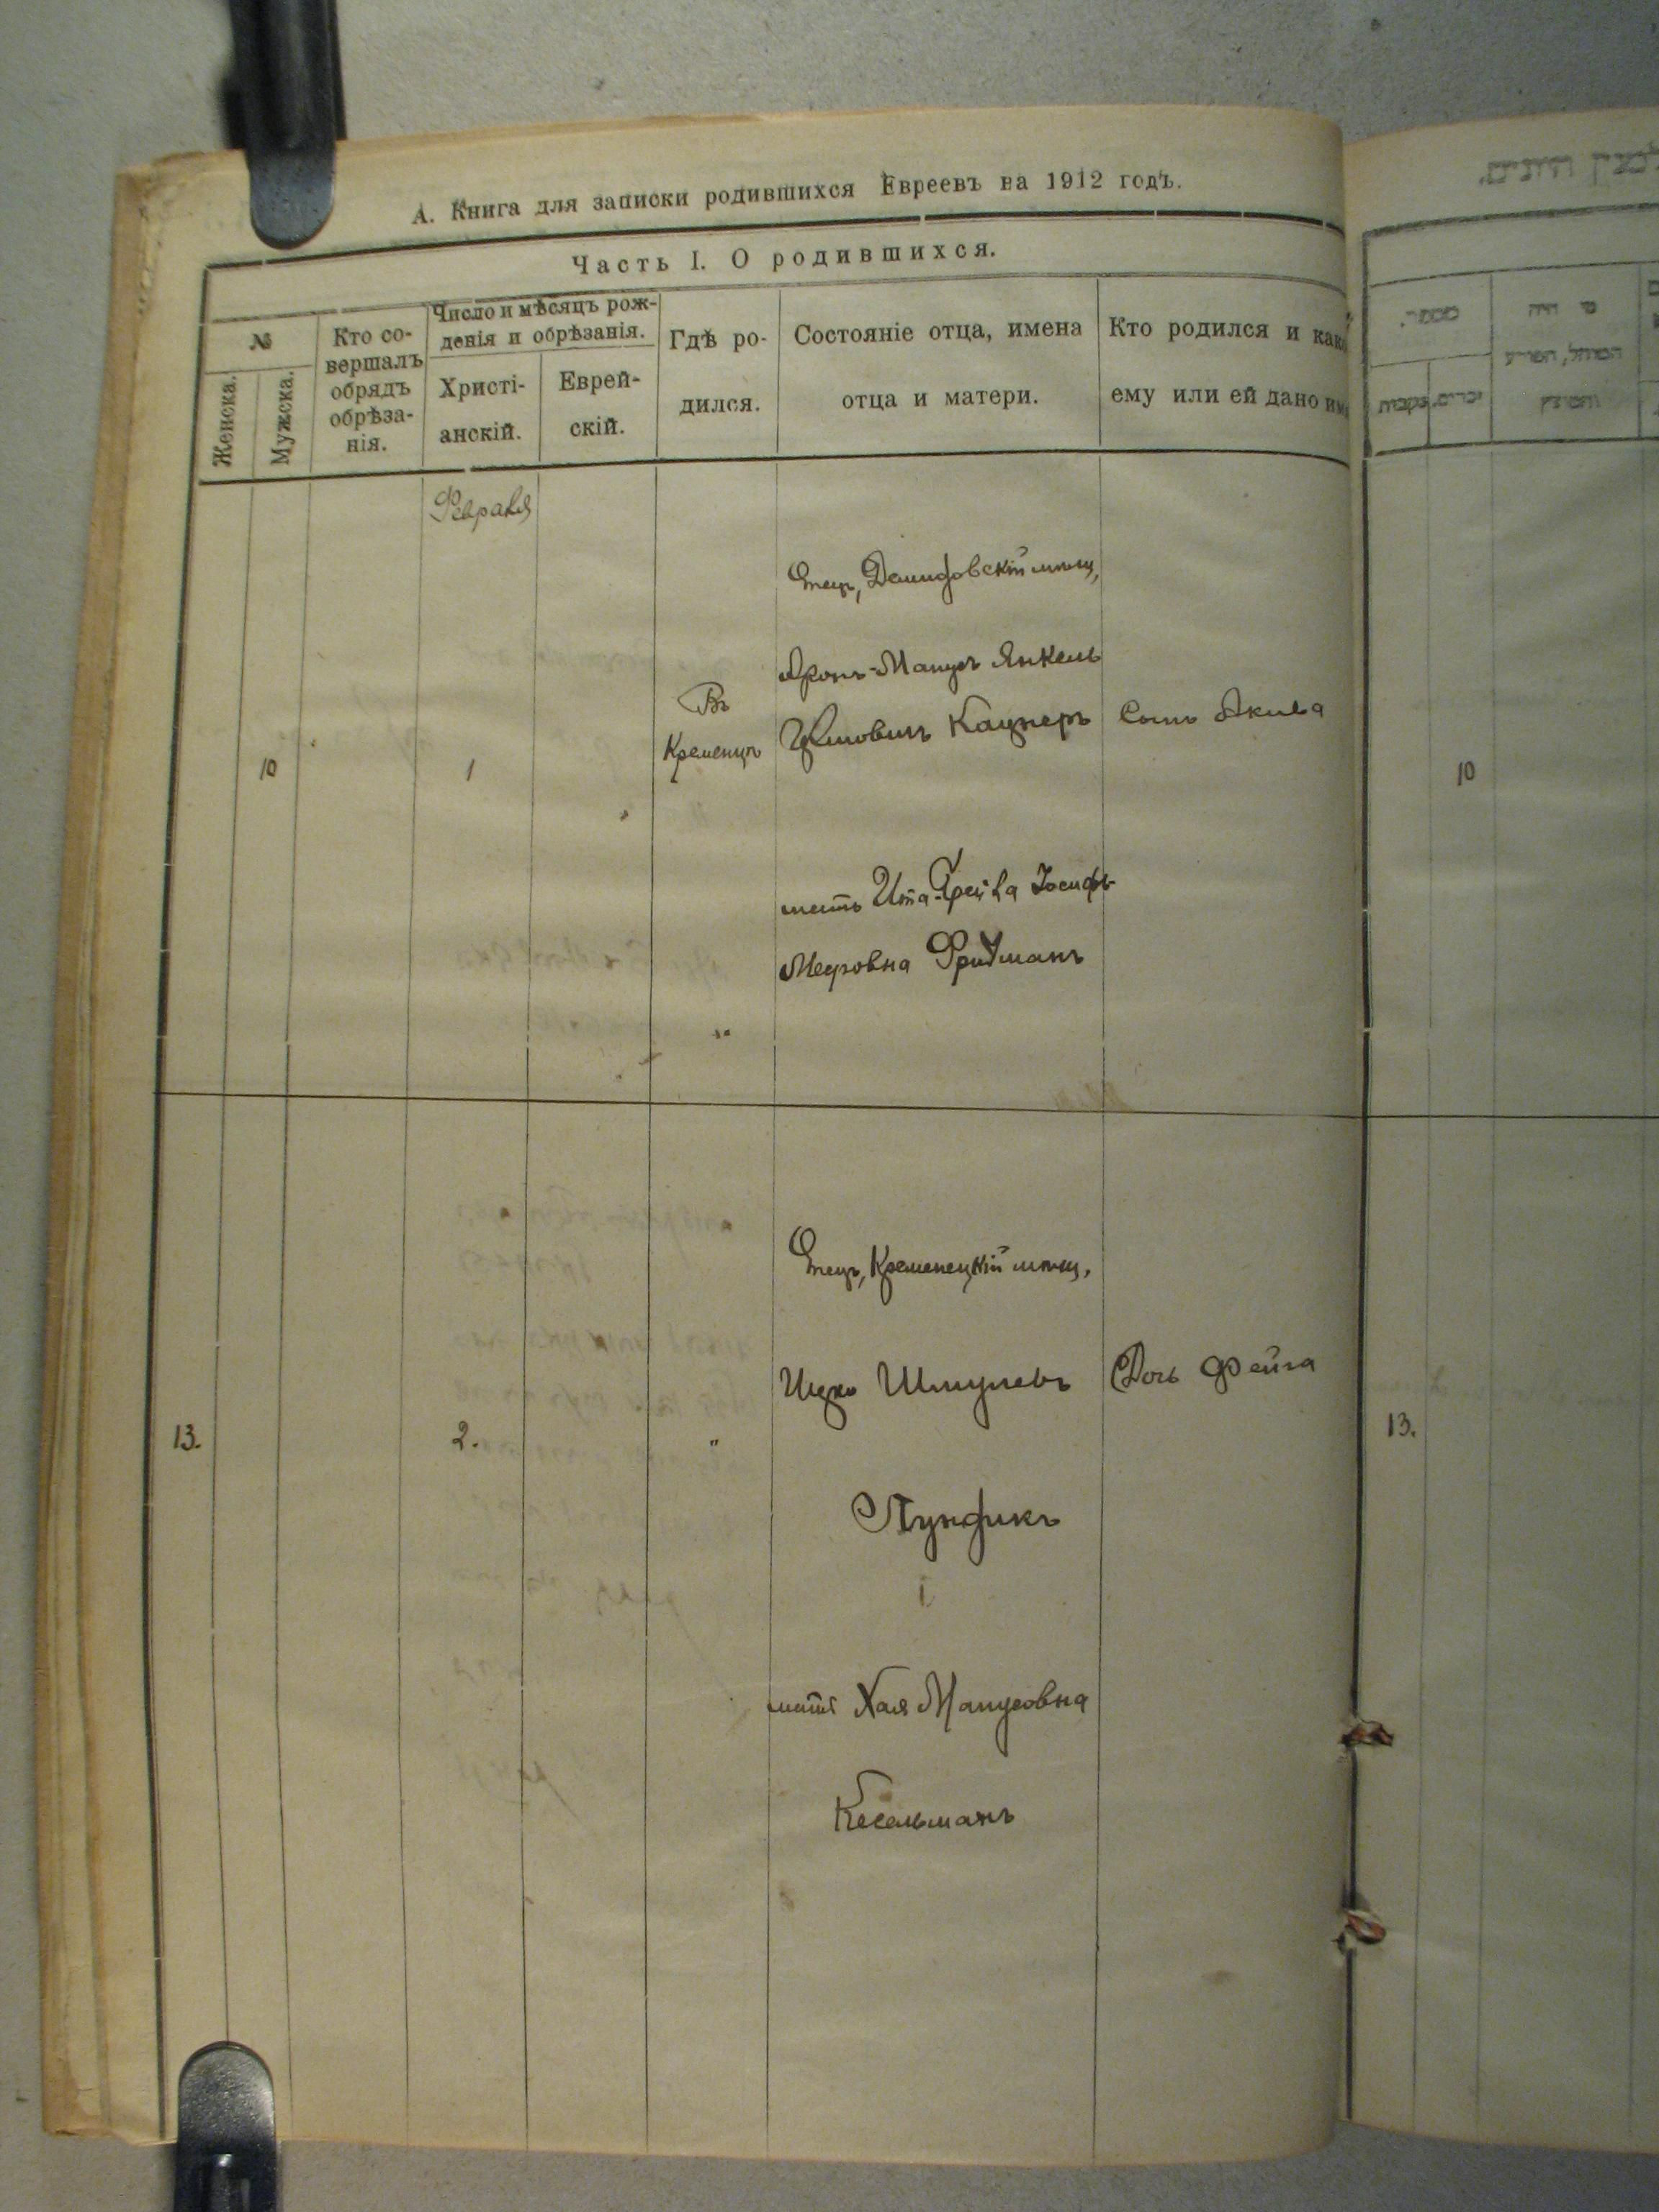 А. Книга для записки родившихся Евреевъ на 1912 годъ.
Часть I. О родившихся.
№
Женска.
Мужска.
Кто со-
вершалъ
обрядъ
обрѣза-
нія.
Число и мѣсяцъ рож-
денія и обрѣзанія.
Христі-
анскій.
Еврей-
скій.
Гдѣ ро-
дился.
Состояніе отца, имена
отца и матери.
Кто родился и како
ему или ей дано им
Февраля
10
1
Въ
Кременцѣ
Отецъ, мѣщ,
Аронъ-Манусъ Янкель
Кацнеръ
мать Ита- Іосифъ-
Мееровна Фридманъ
Сынъ Акива
10
13.
2.
"
Отецъ, Кременецкій мѣщ,
Ицко Шмулевъ
мать Хая Манусовна
Кесельманъ
Дочь Фейга
13.